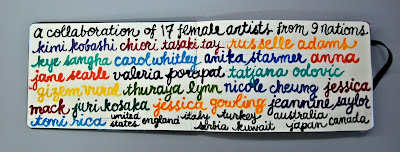 a collaboration of 17 female artists from 9 nations
kimi kobashi chiori tasaki tay russelle adams
kye sangha carol whitley anika starmer anna
jane searle valeria porypat tatjana odovic
gizem vural thuraya lynn nicole cheung jessica
mack juri kosaka jessica gowling jeannine saylor
toni rica united states england italy turkey australia
serbia kuwait japan canada